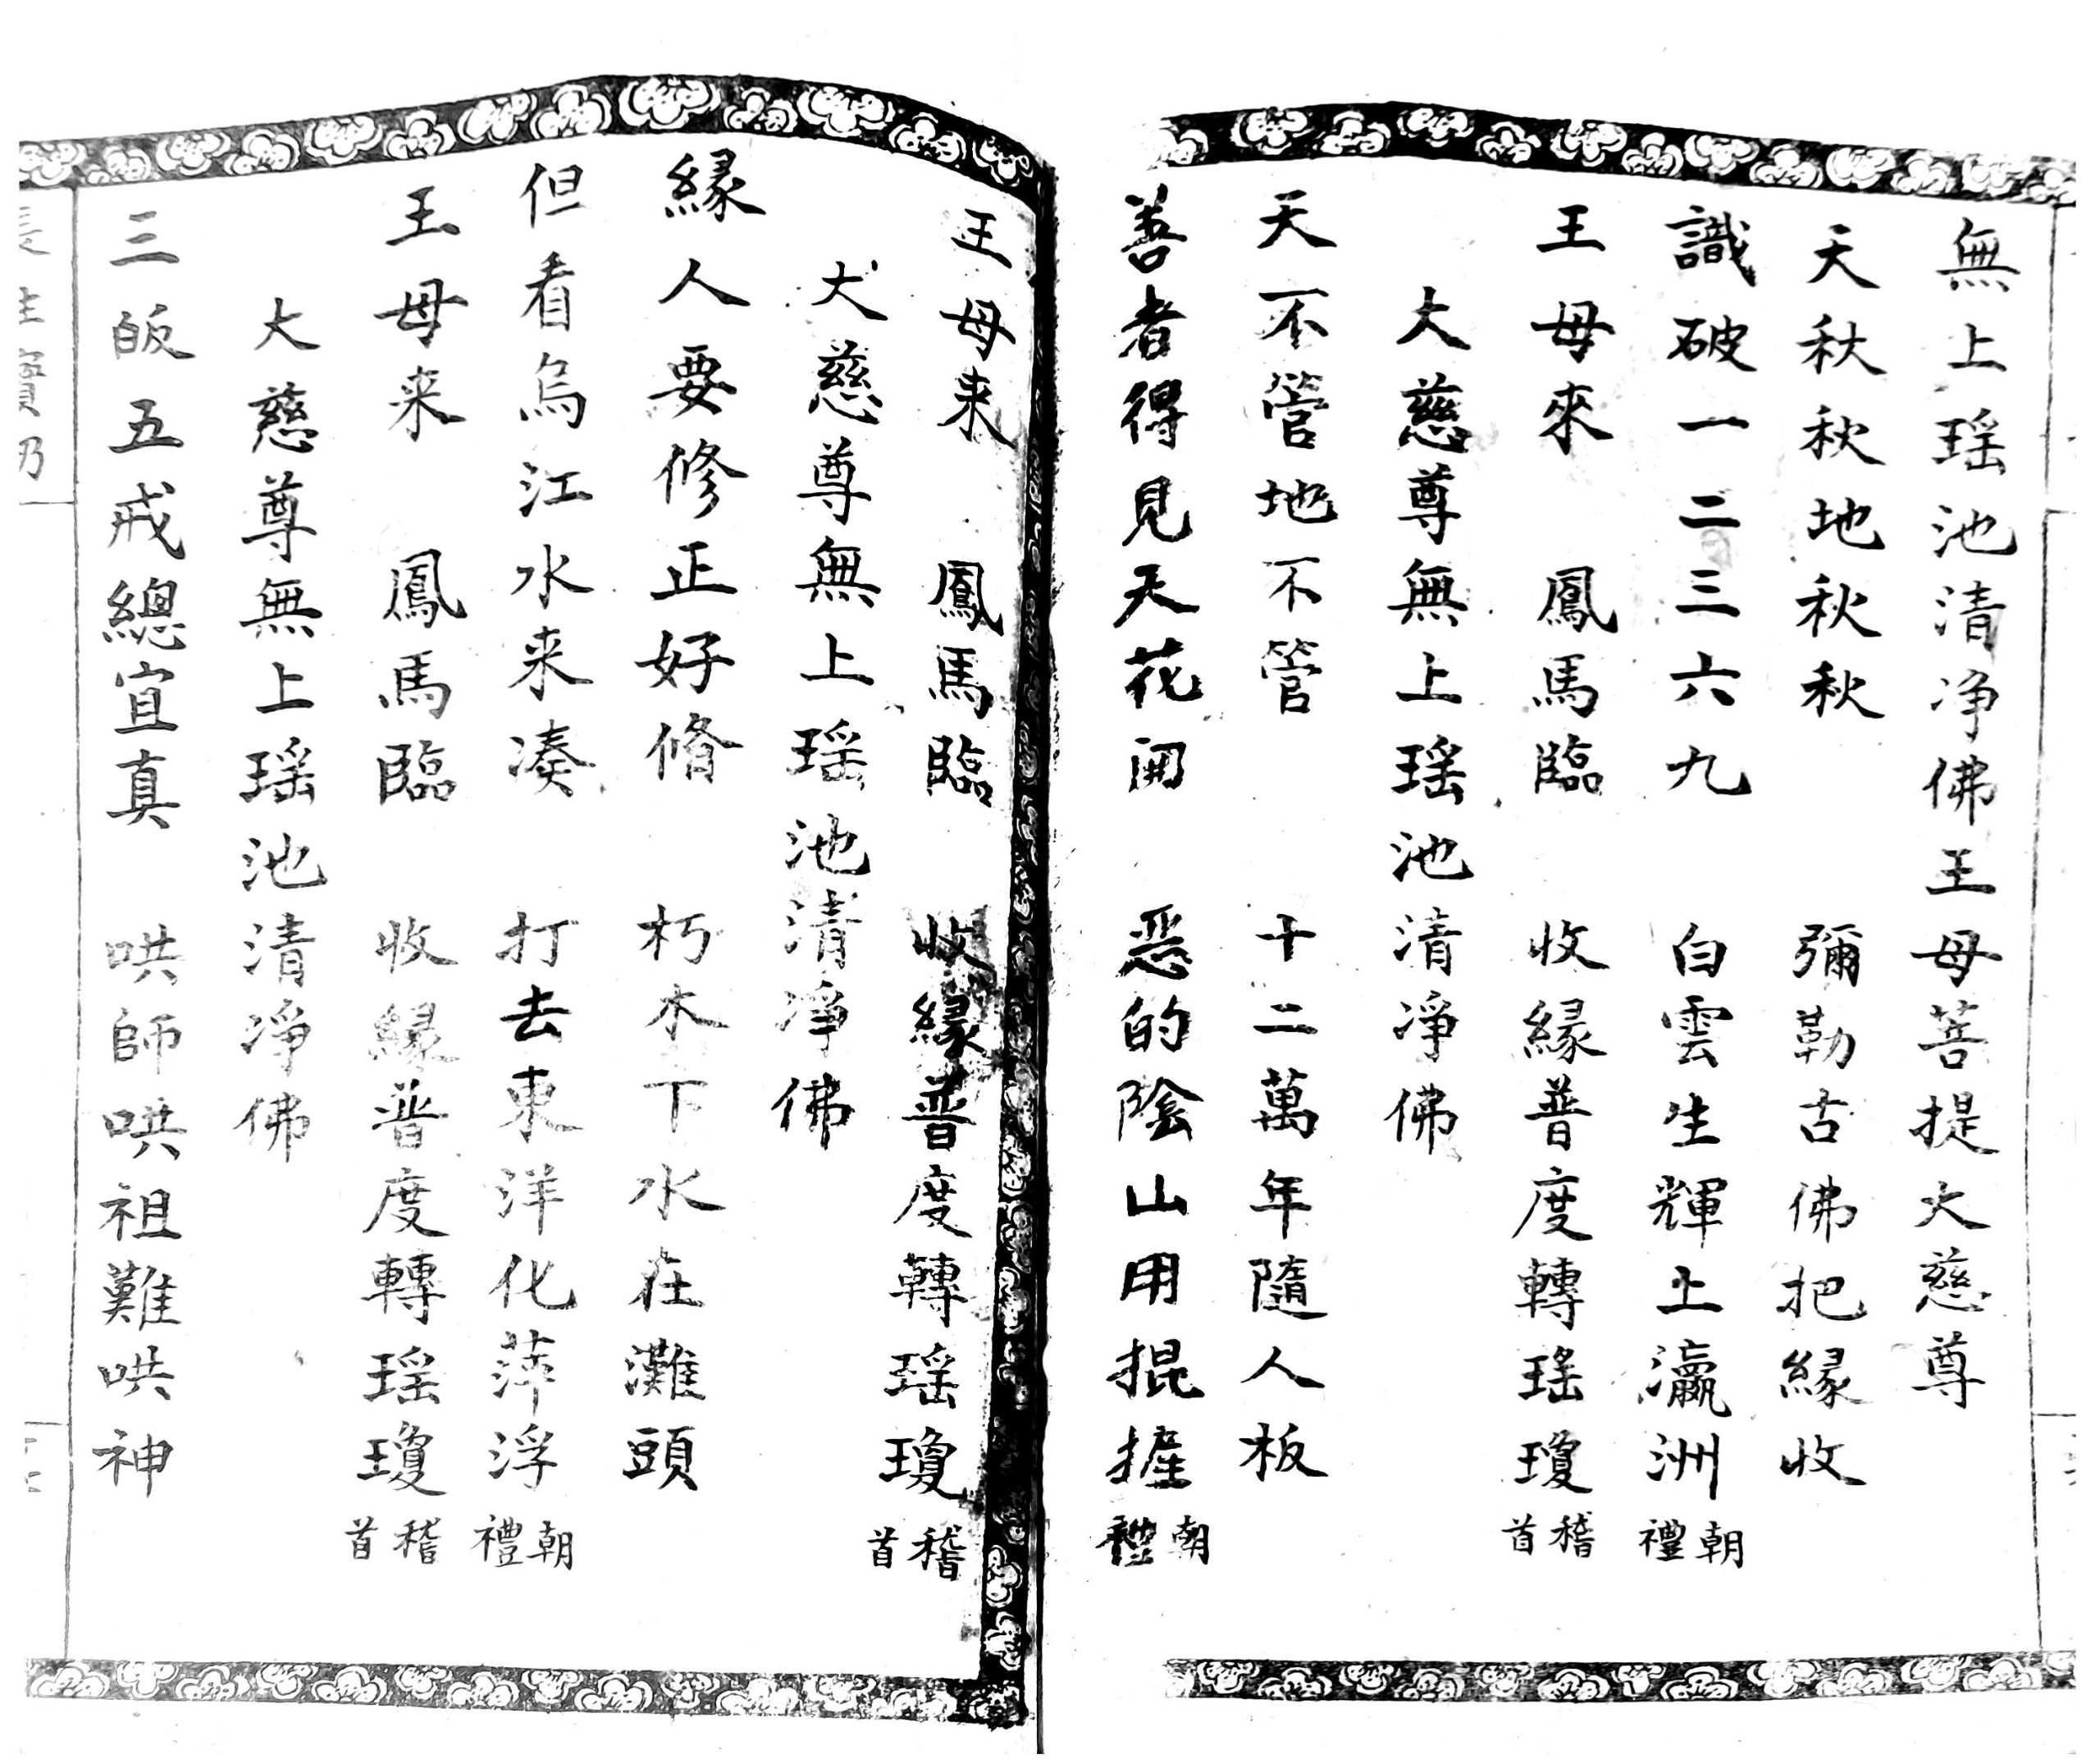 無上瑶池清净佛王母菩提大慈尊
天秋秋地秋秋　彌勒古佛把緣收
識破一二三六九　白雲生輝上瀛洲　朝禮
王母來　鳳馬臨　收緣普度轉瑤瓊　稽首
大慈尊無上瑶池清净佛
天不管地不管　十二萬年隨人板
善者得見天花開　恶的陰山用掍摧　朝禮
王母来　鳳馬臨　收緣普度轉瑶瓊　稽首
大慈尊無上瑶池清净佛
緣人要修正好脩　朽木下水在灘頭
但看烏江水来凑　打去東洋化萍浮　朝禮
王母来　鳳馬臨　收緣普度轉瑶瓊　稽首
大慈尊無上瑶池清净佛
三皈五戒總宜真　哄師哄祖難哄神